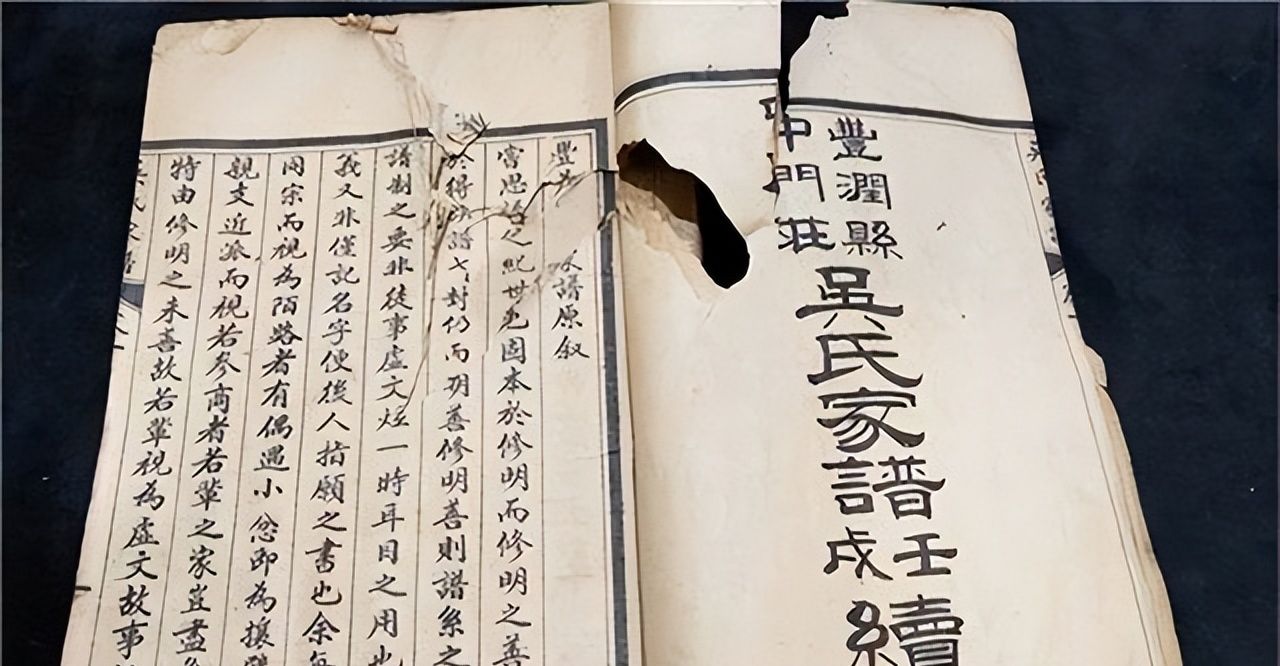 豐潤縣
中門莊
吳氏家譜
壬戌
續
豐 譜原叙
嘗思 紀世 固本於修明而修明之善
於得 譜 封仍而 善修明善則譜系之
譜制之要非徒事虛文炫一時耳目之用也
義又非僅記名字便後人指願之書也余
同宗而視為陌路者有偶遇小忿即為攘
親支近派而視若參商者若輩之家豈盡
特由修明之未善故若輩視為虛文故事